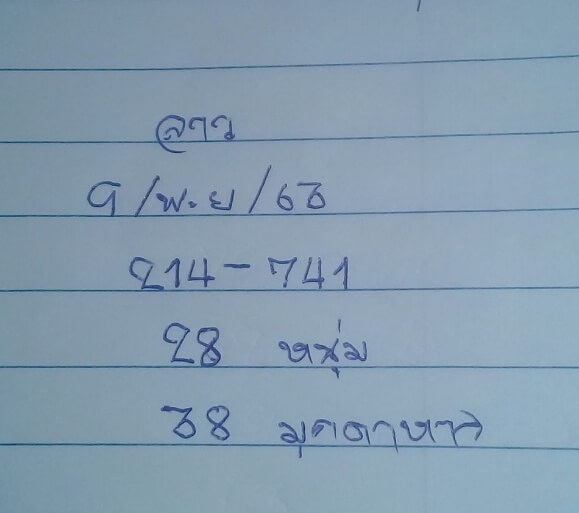 ลาว
9/พ.ย/63
214-741
28 หนุ่ม
38 มุกดาหาร